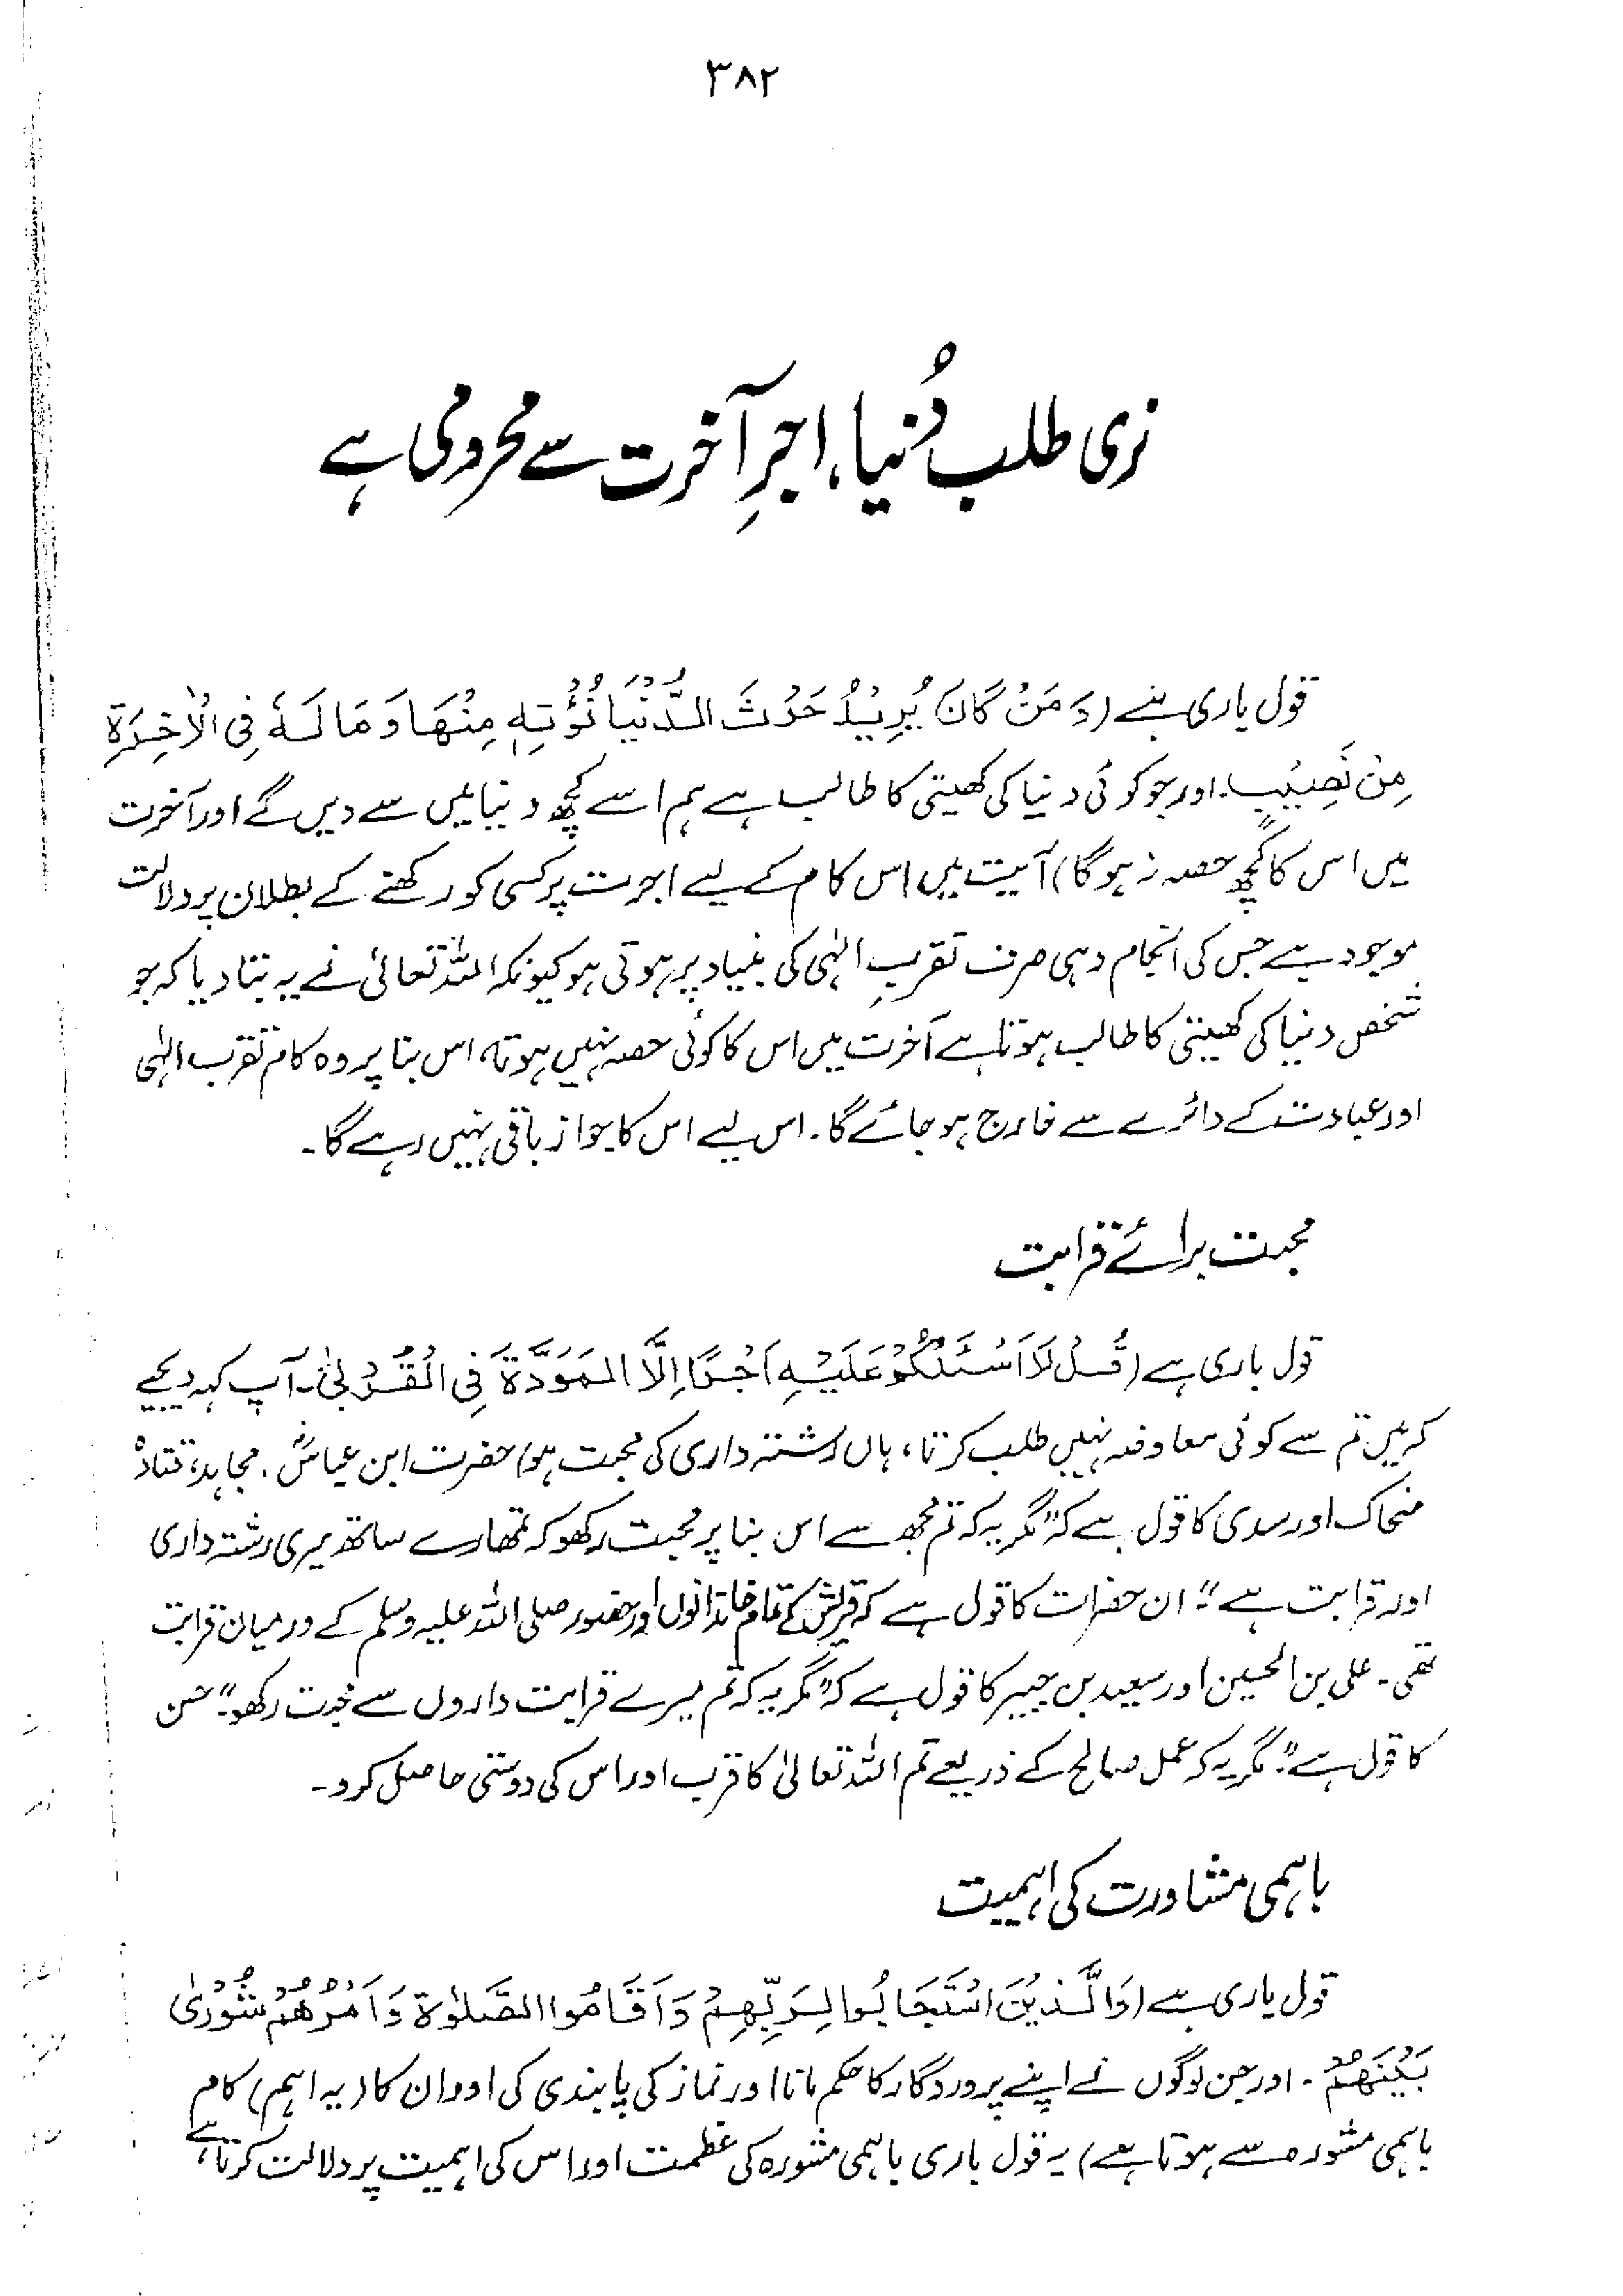 ۳۸۲
نری طلب دُنیا، اجرِ آخرت سے محرومی ہے
قول باری ہے (وَمَنْ كَانَ يُرِيْدُ حَرْثَ الدُّنْيَا نُؤْتِهٖ مِنْهَا وَمَا لَهٗ فِى الْاٰخِرَةِ
مِنْ نَصِيْبٍ۔ اور جو کوئی دنیا کی کھیتی کا طالب ہے ہم اسے کچھ دنیا میں سے دیں گے اور آخرت
میں اس کا کچھ حصہ نہ ہوگا) آیت میں اس کام کے لیے اجرت پر کسی کو رکھنے کے بطلان پر دلالت
موجود ہے جس کی انجام دہی صرف تقربِ الٰہی کی بنیاد پر ہوتی ہو کیونکہ اللہ تعالیٰ نے یہ بتا دیا کہ جو
شخص دنیا کی کھیتی کا طالب ہوتا ہے آخرت میں اس کا کوئی حصہ نہیں ہوتا، اس بنا پر وہ کام تقرب الٰہی
اور عبادت کے دائرے سے خارج ہو جائے گا۔ اس لیے اس کا جواز باقی نہیں رہے گا۔
محبت برائے قرابت
قول باری ہے (قُلْ لَا اَسْئَلُكُمْ عَلَيْهِ اَجْرًا اِلَّا الْمَوَدَّةَ فِى الْقُرْبٰى۔ آپ کہہ دیجیے
کہ میں تم سے کوئی معاوضہ نہیں طلب کرتا، ہاں رشتہ داری کی محبت ہو) حضرت ابن عباسؓ، مجاہد، قتادہ
ضحاک اور سدی کا قول ہے کہ "مگر یہ کہ تم مجھ سے اس بنا پر محبت رکھو کہ تمھارے ساتھ میری رشتہ داری
اور قرابت ہے" ان حضرات کا قول ہے کہ قریش کے تمام خاندانوں اور حضور صلی اللہ علیہ وسلم کے درمیان قرابت
تھی۔ علی بن الحسین اور سعید بن جبیر کا قول ہے کہ "مگر یہ کہ تم میرے قرابت داروں سے محبت رکھو" حسن
کا قول ہے" مگر یہ کہ عمل صالح کے ذریعے تم اللہ تعالیٰ کا قرب اور اس کی دوستی حاصل کرو۔
باہمی مشاورت کی اہمیت
قول باری ہے (وَالَّذِيْنَ اسْتَجَابُوا لِرَبِّهِمْ وَاَقَامُوا الصَّلٰوةَ وَاَمْرُهُمْ شُوْرٰى
بَيْنَهُمْ۔ اور جن لوگوں نے اپنے پروردگار کا حکم مانا اور نماز کی پابندی کی اور ان کا (یہ اہم) کام
باہمی مشورہ سے ہوتا ہے) یہ قول باری باہمی مشورہ کی عظمت اور اس کی اہمیت پر دلالت کرتا ہے